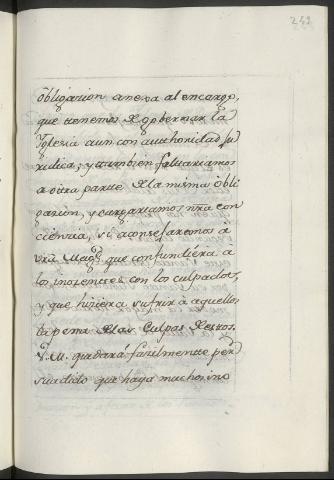 242
obligacion anexa al encargo,
que tenemos de governar la
Yglesia aun con authoridad ju
ridica; y tambien faltariamos
a otra parte de la misma obli
gacion, y cargariamos nra con
ciencia, si aconsejaremos a
vra Magd. que confundiera a
los inocentes con los culpados,
y que hiziera sufrir à aquellos
la pena de las Culpas de estos.
V. M. quedará facilmente per
suadido que haya muchos ino